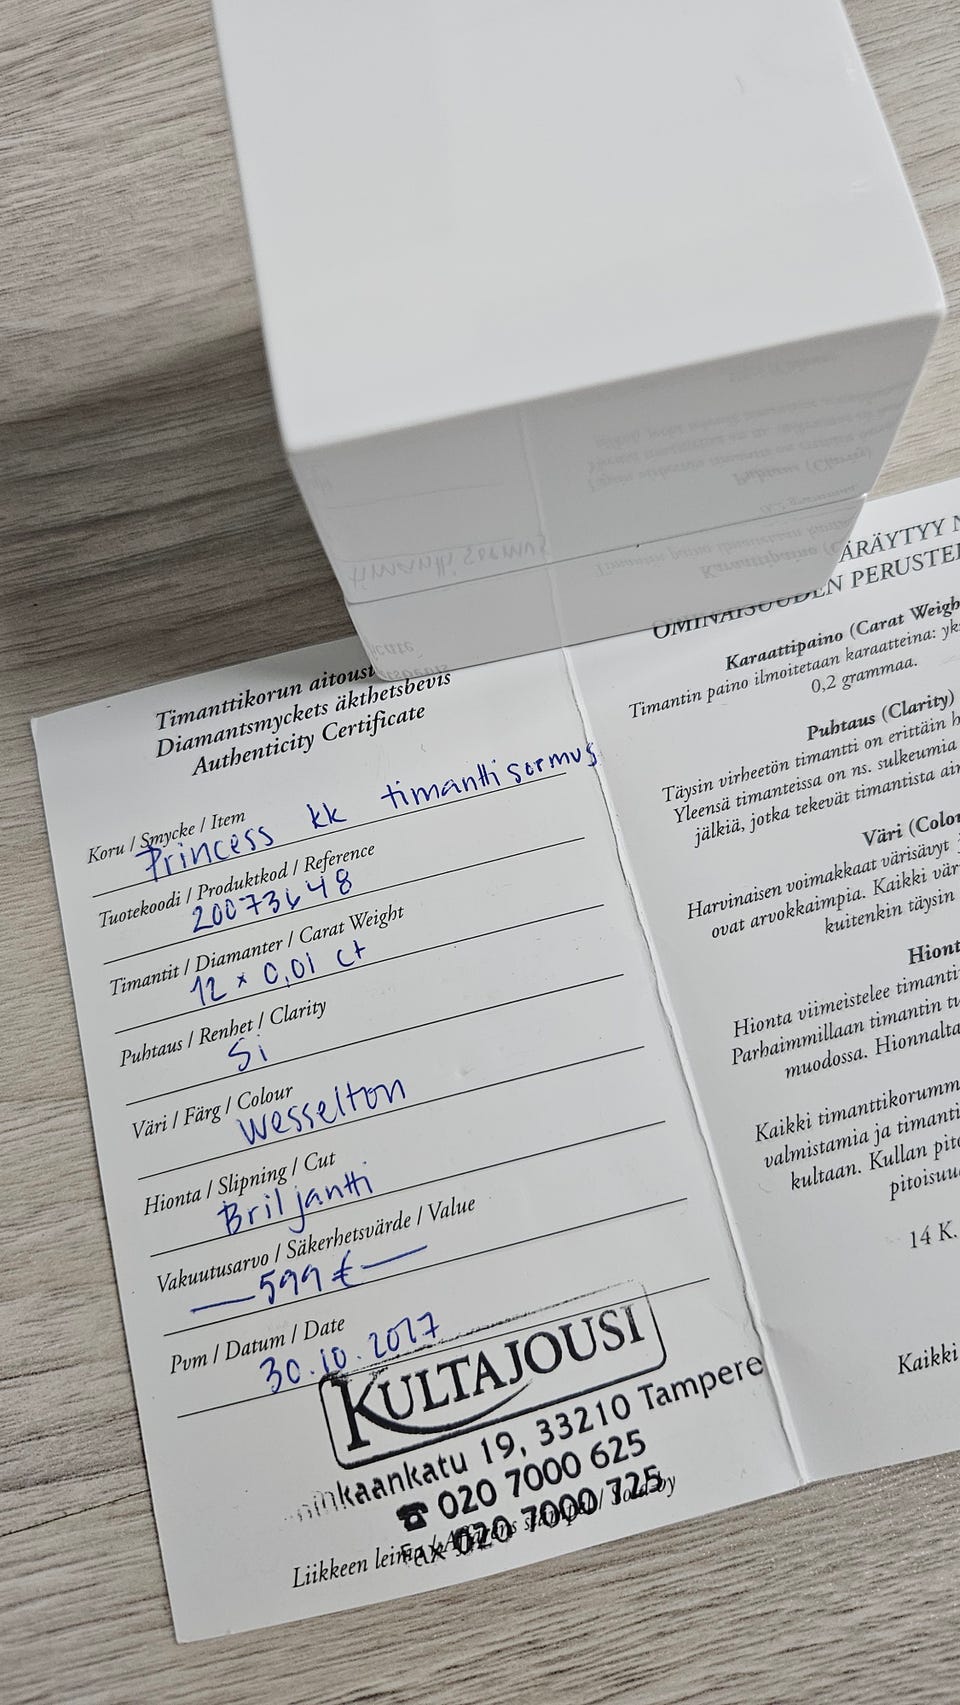 Timanttikorun aitoust
Diamantsmyckets äkthetsbevis
Authenticity Certificate
Koru / Smycke / Item
Princess kk timanttisormus
Tuotekoodi / Produktkod / Reference
20073648
Timantit / Diamanter / Carat Weight
12 x 0,01 ct
Puhtaus / Renhet / Clarity
Si
Väri / Färg / Colour
Wesselton
Hionta / Slipning / Cut
Briljantti
Vakuutusarvo / Säkerhetsvärde / Value
— 599 € —
Pvm / Datum / Date
30.10.2017
KULTAJOUSI
inkaankatu 19, 33210 Tampere
☎ 020 7000 625
Fax 020 7000 725
Liikkeen leima / Affärens stämpel / Sold by
ÄRÄYTYY N
OMINAISUUDEN PERUSTEE
Karaattipaino (Carat Weigh
Timantin paino ilmoitetaan karaatteina: yk
0,2 grammaa.
Puhtaus (Clarity)
Täysin virheetön timantti on erittäin h
Yleensä timanteissa on ns. sulkeumia
jälkiä, jotka tekevät timantista ai
Väri (Colou
Harvinaisen voimakkaat värisävyt
ovat arvokkaimpia. Kaikki vär
kuitenkin täysin
Hiont
Hionta viimeistelee timanti
Parhaimmillaan timantin tu
muodossa. Hionnalta
Kaikki timanttikorumm
valmistamia ja timanti
kultaan. Kullan pito
pitoisuu
14 K.
Kaikki